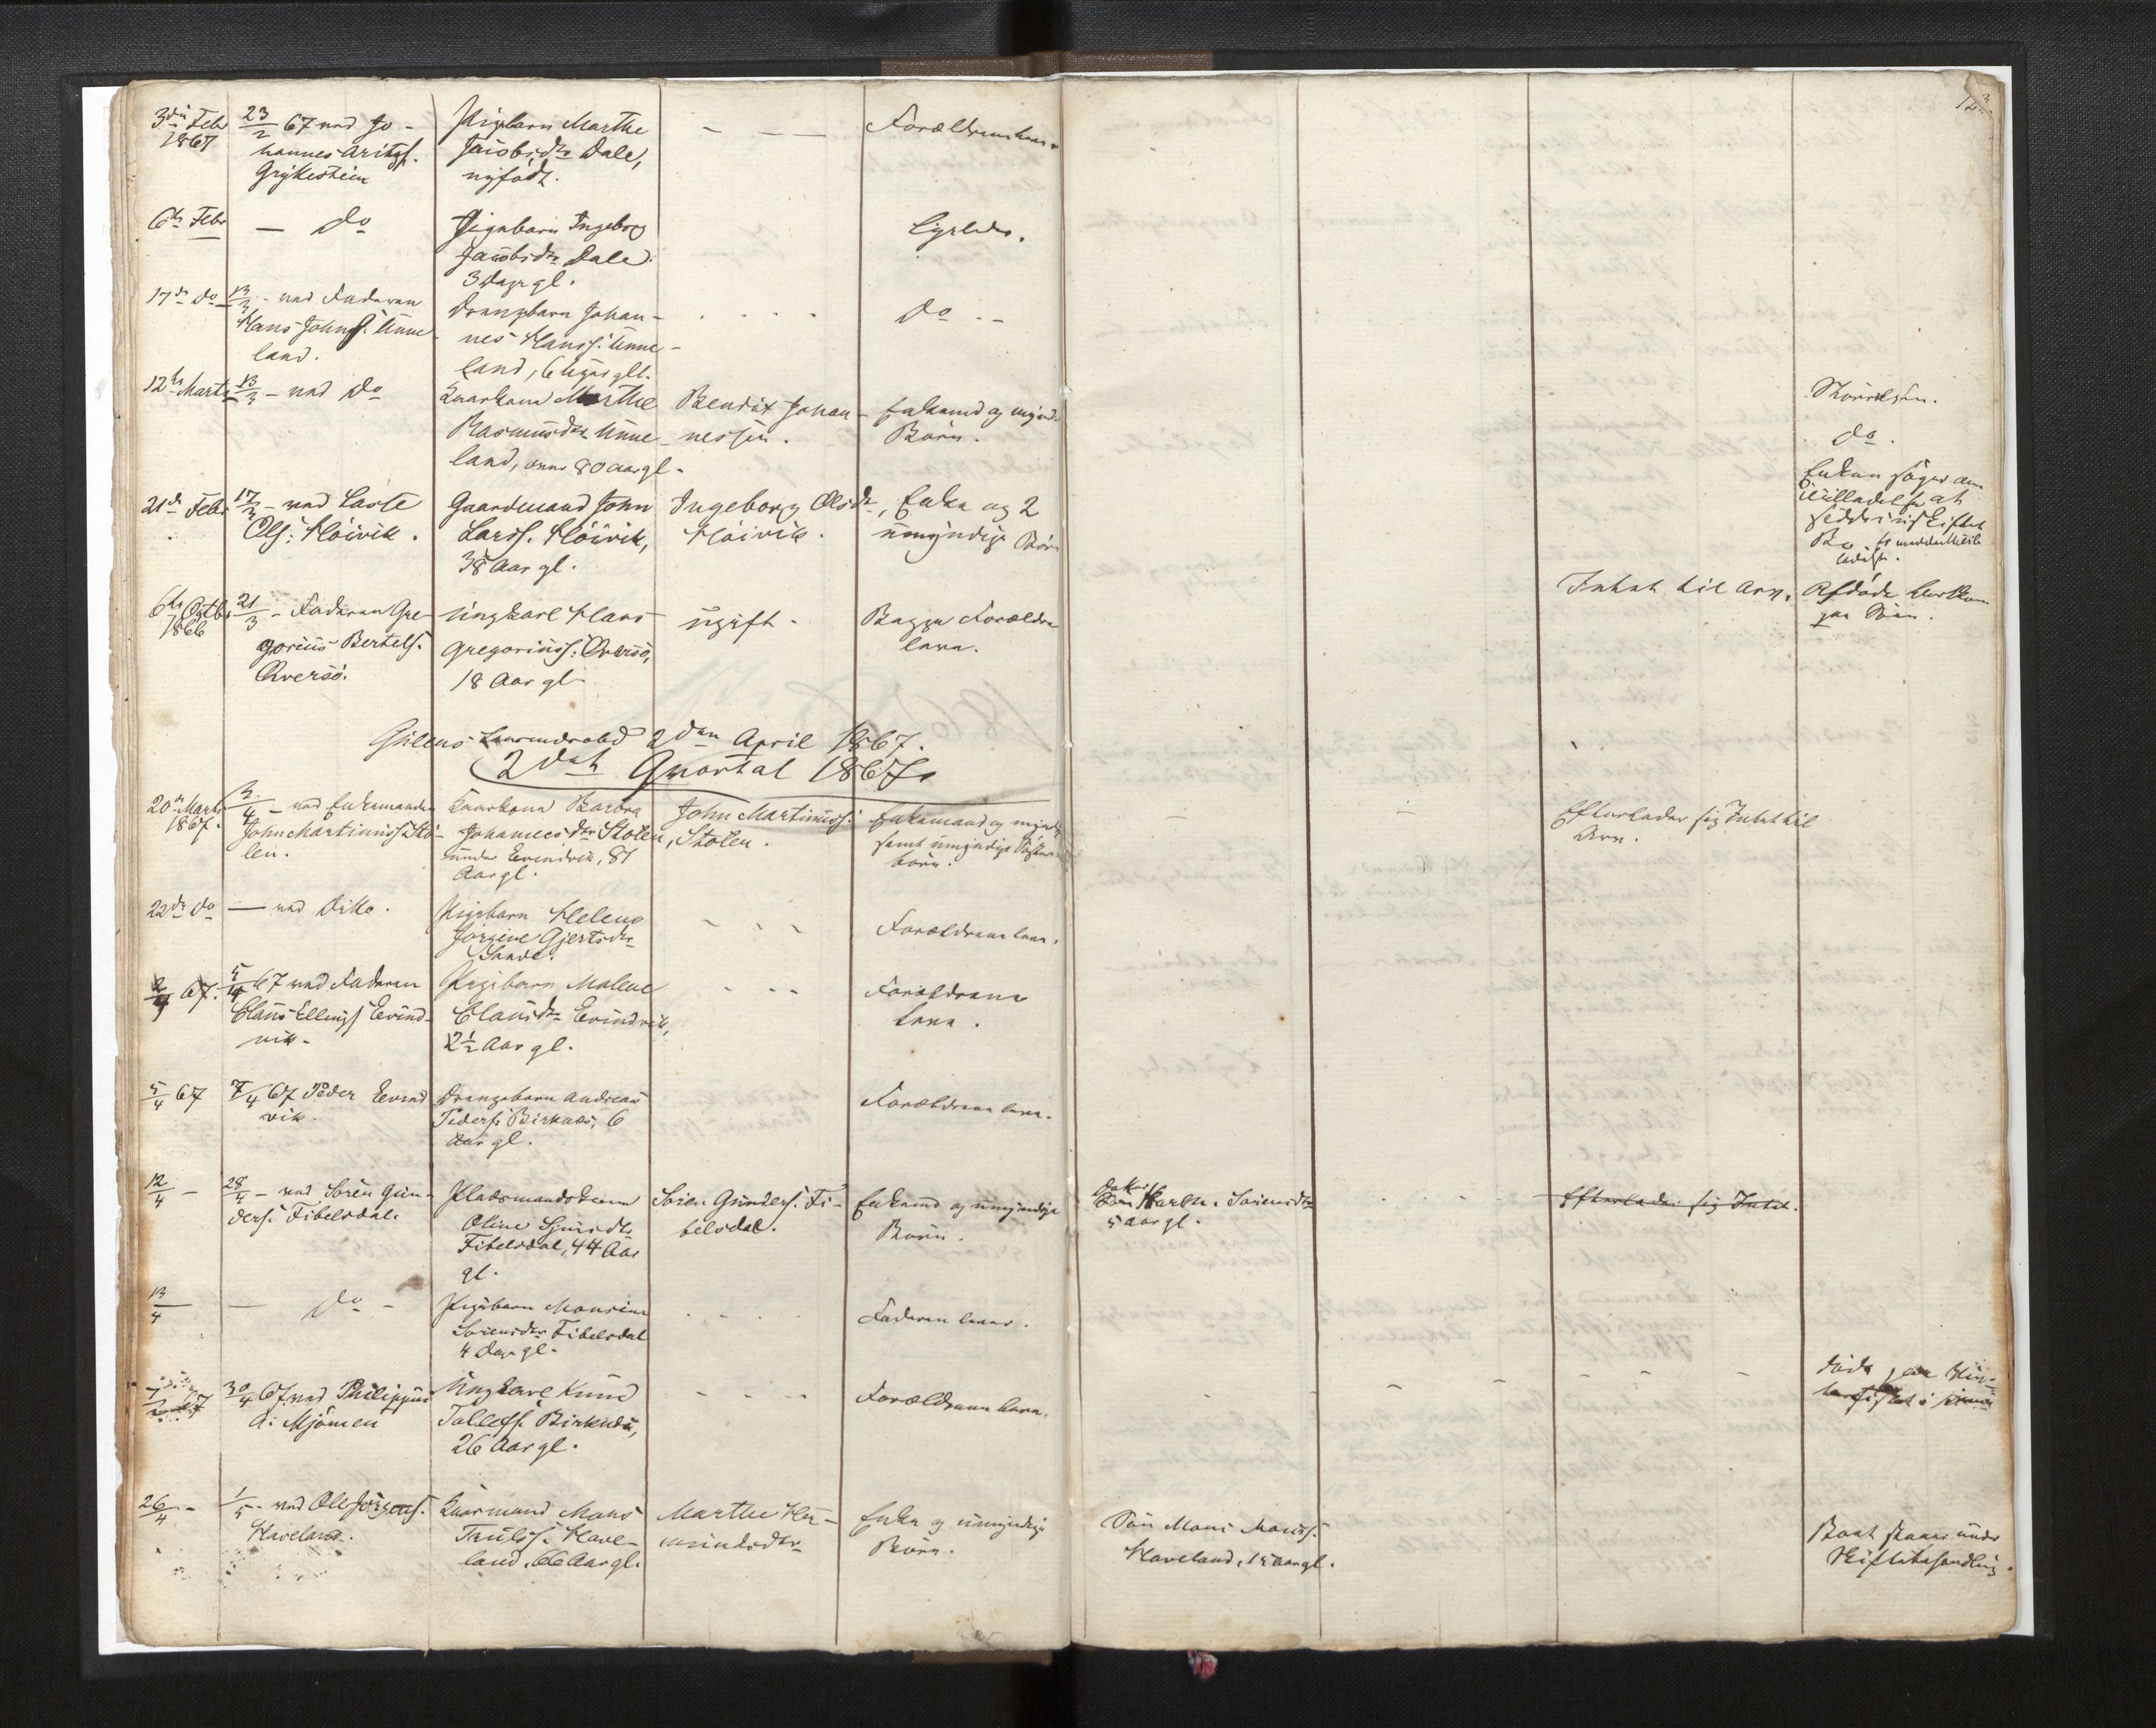 3die Febr
1867
23/2 67 ved Jo-
hannes Aritzs.
Grijkestein
Pigebarn Marthe
Jacobsdtr Dale,
nyfødt.
- - -
Forældrene leve.
6te Febr
— do
Pigebarn Ingeborg
Jacobsdtr Dale
3 Dage gl.
Ligeledes.
17de do
13/3 - ved Faderen
Hans Johns. Unne-
land.
Drengebarn Johan-
nes Hanss. Unne-
land, 6 Uger gl.
do
12te Marts
13/3 - ved do
Kaarkone Marthe
Rasmusdtr Unne-
land, 80 aar gl.
Bendix Johan-
nessen.
Enkemd og mynd.
Børn.
Skiøndsen.
do.
21de Febr
17/3 - ved Lasse
Ols: Høivik.
Gaardmand John
Larss. Høivik,
38 Aar gl.
Ingeborg Olsdtr
Høivik.
Enke og 2
umyndige Børn
Enken søger om
at
Bo
6te Octbr
1866
21/3 - Faderen Gre-
gorius Bertels.
Qversø.
Ungkarl Hans
Gregoriuss. Qversø,
18 Aar gl.
ugift.
Begge Forældre
leve.
Intet til Arv.
Afdøde
paa Søen.
Gulens Lensmandsbd 2den April 1867.
2det Qvartal 1867.
20de Marts
1867.
3/4 - ved Enkemanden
John Martinuss. Stø-
len.
Kaarkone Barbra
Johannesdtr Stølen,
under Evindvik, 81
Aar gl.
John Martinuss.
Stølen.
Enkemand og mynd.
samt umyndige
børn.
Efterlader sig Intet til
Arv.
22de do
— ved Dito.
Pigebarn Helene
Jørgine Gjertsdtr
Sande.
Forældrene leve.
2/4 67.
5/4 67 ved Faderen
Claus Ellings Evind-
vik.
Pigebarn Malene
Clausdtr Evindvik,
2½ Aar gl.
Forældrene
leve.
5/4 67
7/4 67 Peder Evind
vik.
Drengebarn Andreas
Peders. Birknæs, 6
Aar gl.
Forældrene leve.
12/4 -
28/4 - ved Søren Gun-
ders. Fibelsdal.
Pladsmandskone
Oline
Fibelsdal, 44 Aar
gl.
Søren Gunders. Fi-
belsdal.
Enkemd og umyndige
Børn.
Datter Marthe Sørensdtr
5 aar gl.
Efterlader sig Intet.
13/4
— do -
Pigebarn Monsine
Sørensdtr Fibelsdal
4 Dage gl.
Faderen lever.
7/2 67
30/4 67 ved Philippus
A: Mjømen
Ungkarl Knud
Tollefs. Birknæs,
26 Aar gl.
Forældrene leve.
døde paa Vin-
terfisket i
26/4 -
1/5 - ved Ole Jørgens.
Haveland.
Kaarmand Mons
Truls. Have-
land, 66 Aar gl.
Marthe Her-
mundsdtr
Enke og umyndige
Børn.
Søn Mons Monss.
Haveland, 15 aar gl.
Boet staaer under
Skiftebehandling.